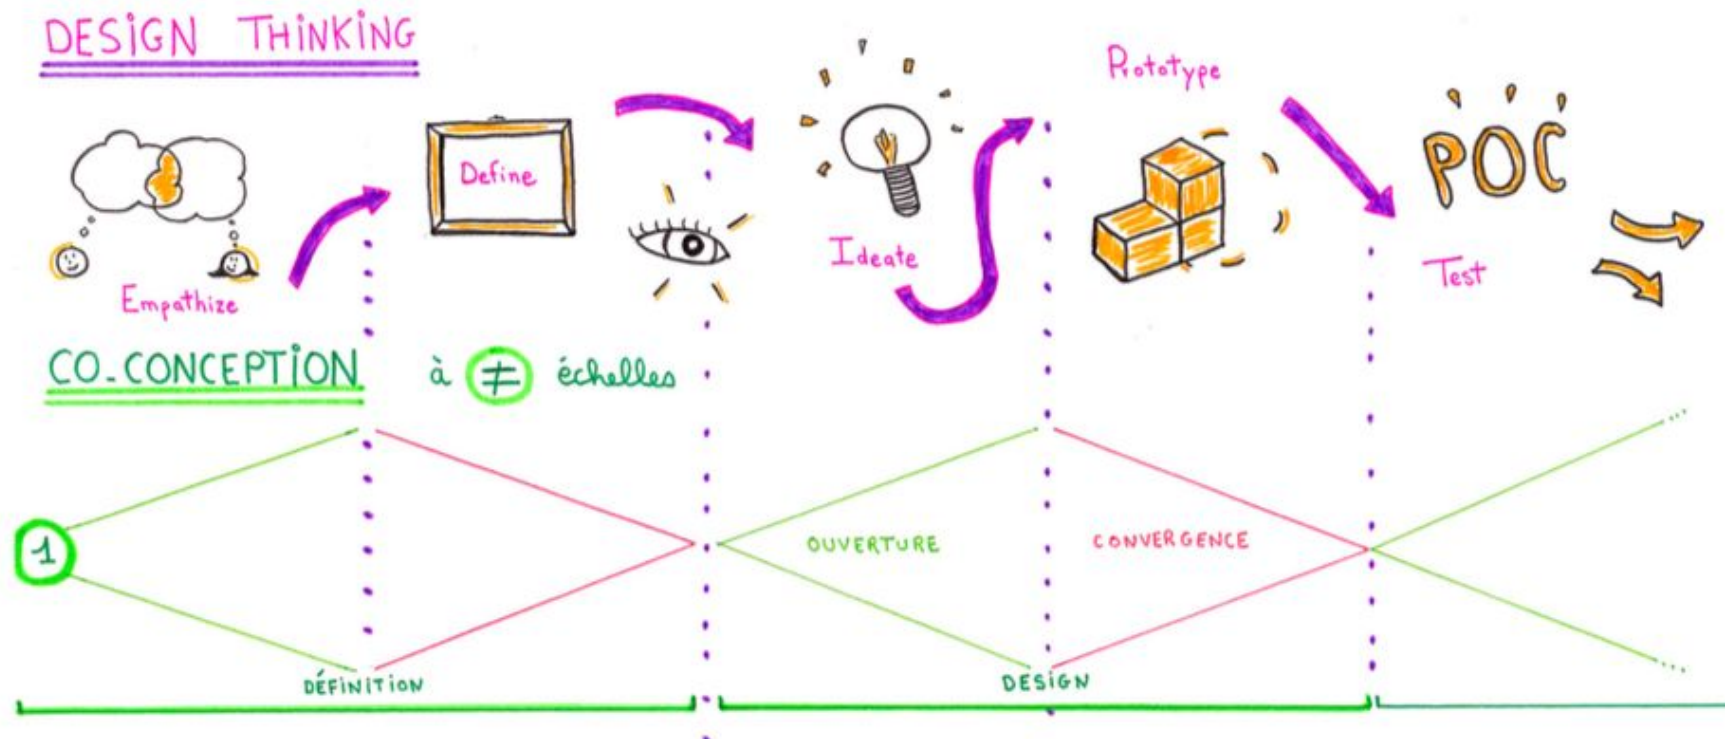 DESiGN THiNKiNG
Empathize
Define
Ideate
Prototype
POC
Test
CO-CONCEPTiON à ≠ échelles
1
OUVERTURE
CONVERGENCE
DÉFiNiTiON
DESiGN